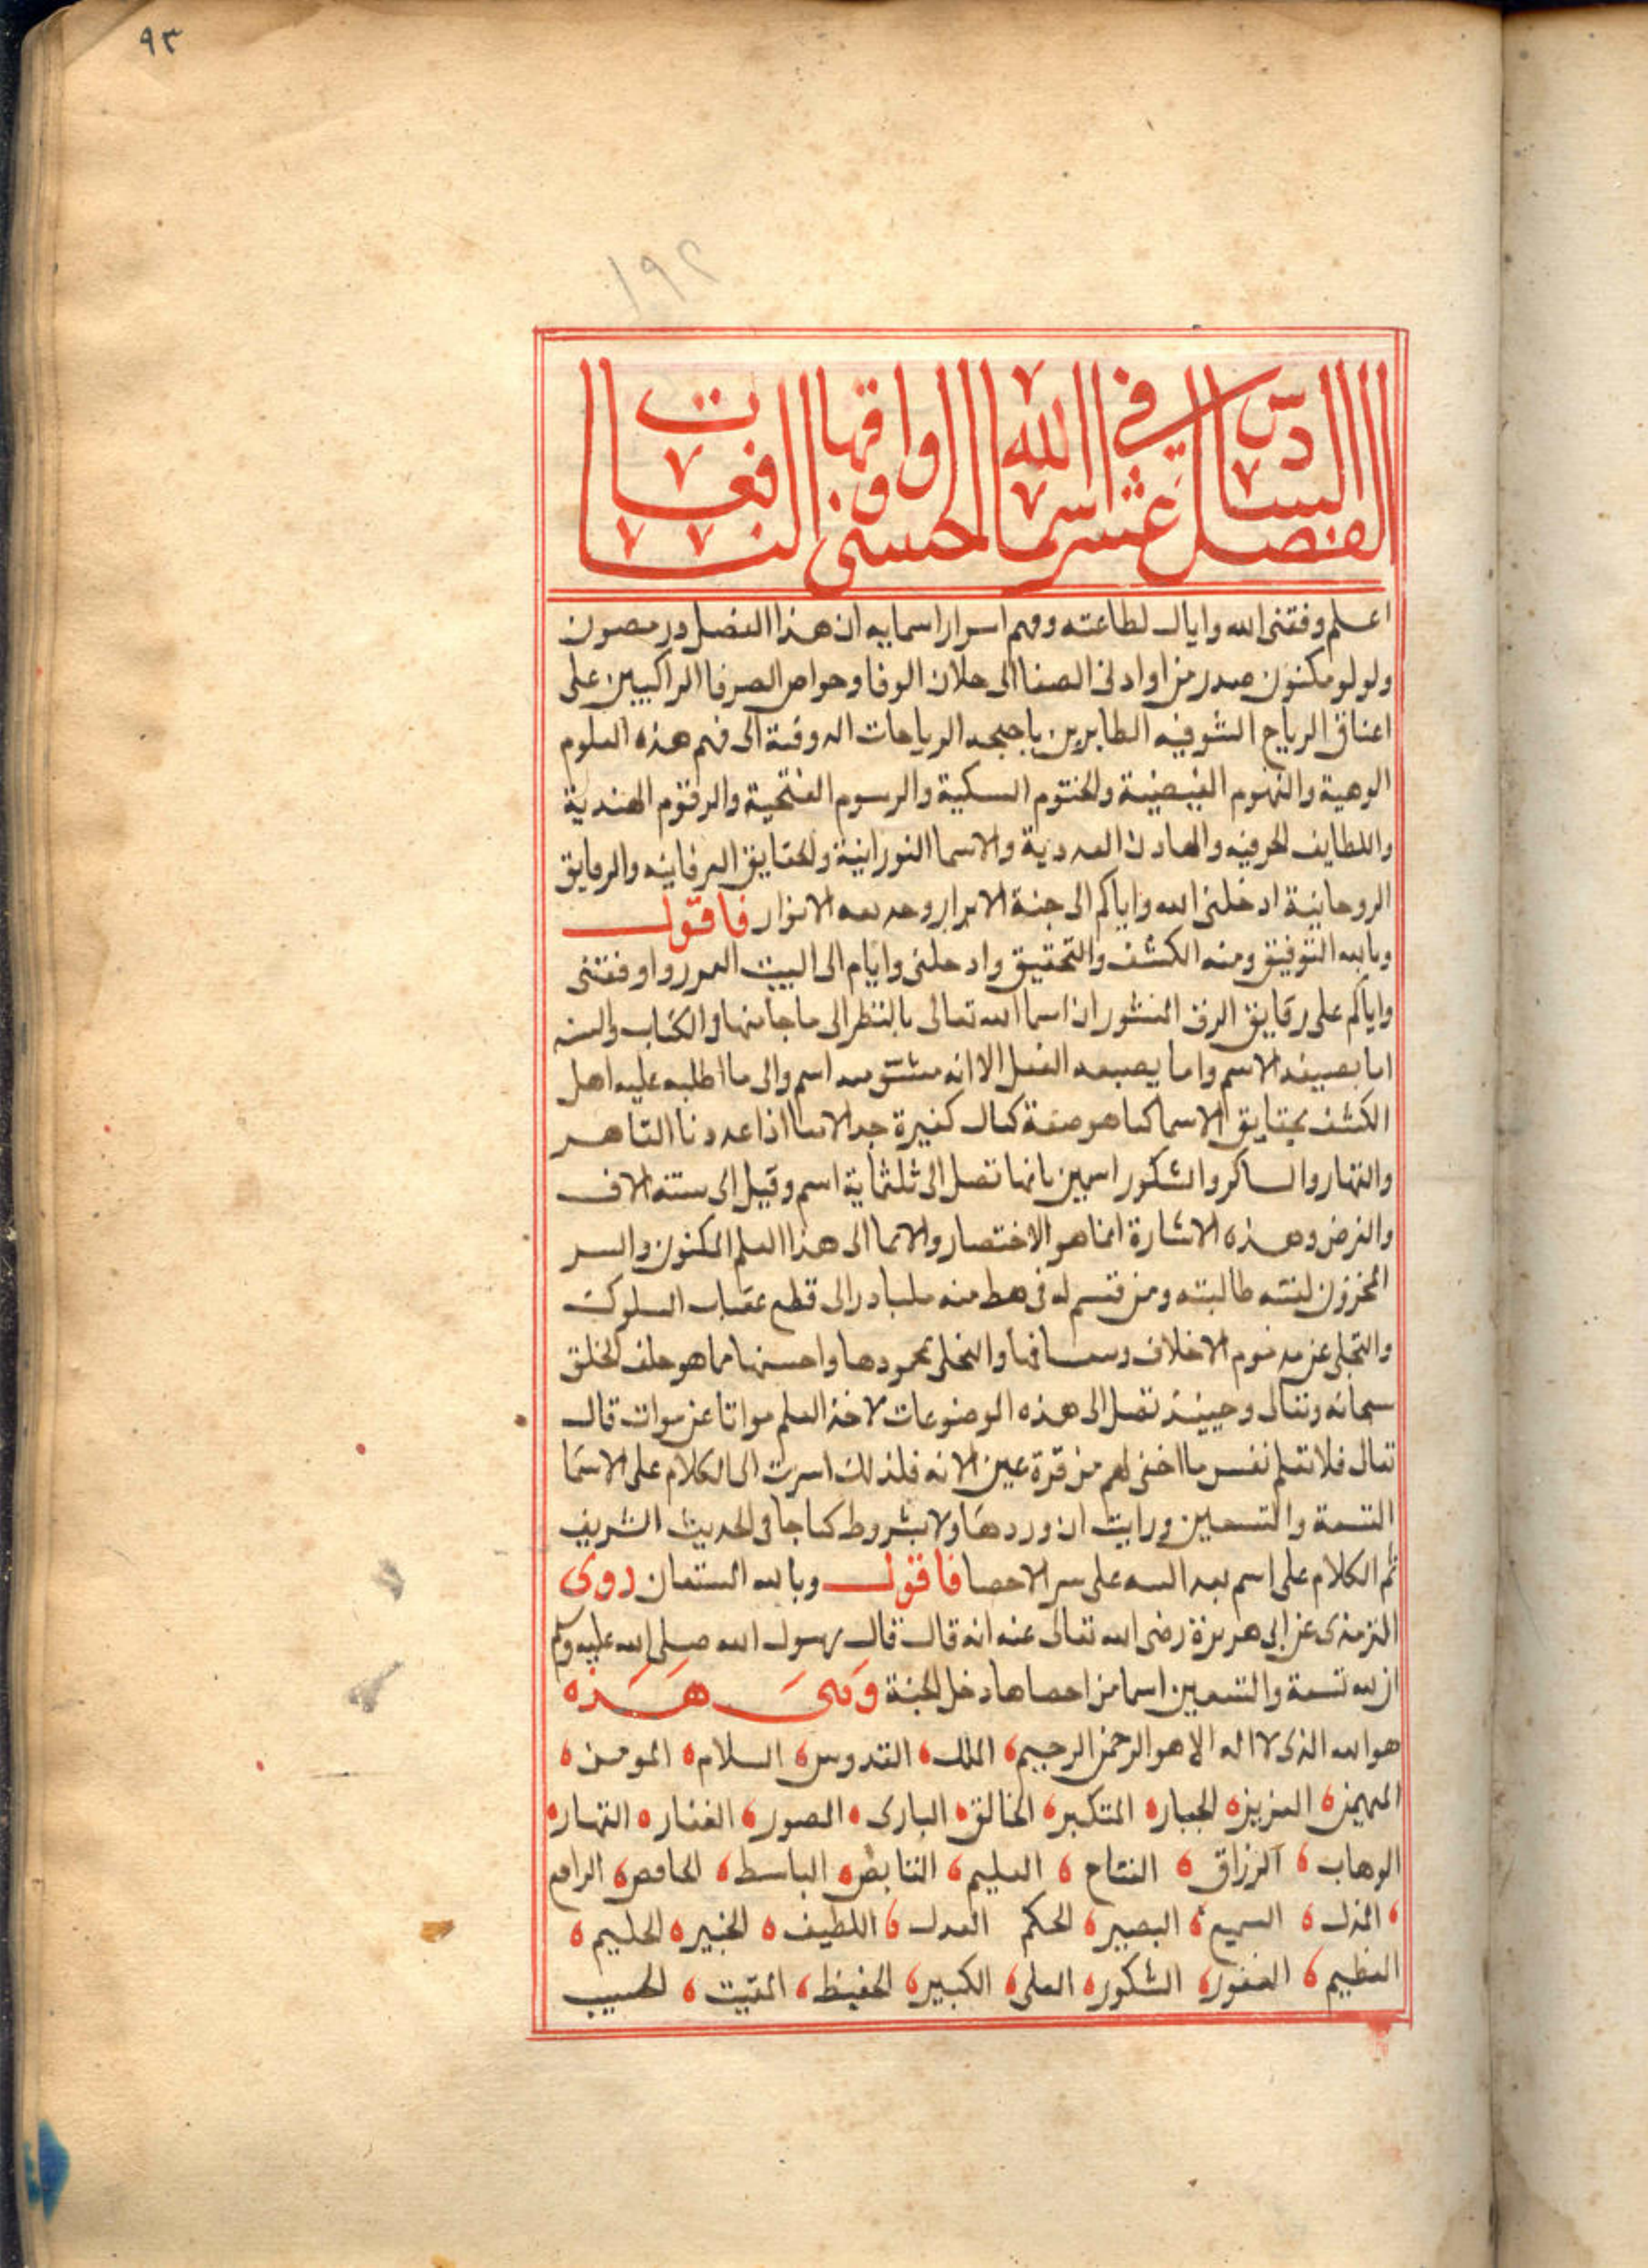 ٩٣
الفصل السادس عشر في اسما الله الحسنى واوفاقها النافعات
اعلم وفقنى الله واياك لطاعته وفهم اسرار اسمايه ان هذا الفصل در مصون
ولولو مكنون صدر من الصفا الى خلان الوفا وخواص الراكبين على
اعناق الرياح الشوقيه الطايرين باجنحه الرياحات الى فهم هذه العلوم
الوهبية والفهوم الفيضية والختوم السكية والرسوم الفتحية والرقوم الهندية
واللطايف الحرفيه العددية والاسما النورانية والحقايق العرفانيه والرقايق
الروحانية ادخلنى الله واياكم الى جنة الابرار الانوار فاقول
وبالله التوفيق ومنه الكشف والتحقيق وادخلنى واياكم الى البيت واوقفنى
واياكم على رقايق الرق المنشور ان اسما الله تعالى بالنظر الى ما جا منها فى الكتاب والسنه
اما بصيغه الاسم واما بصيغه الفعل الا انه مشتق منه اسم والى ما اطلع عليه اهل
الكشف بحقايق الاسما كما هو صفة كمال كثيرة جدا لا اذا عددنا القاهر
والقهار والساكر والشكور اسمين بانها تصل الى ثلثماية اسم وقيل الى ستة الاف
والغرض وهذه الاشارة انما هو الاختصار والايما الى هذا العلم المكنون والسر
المخزون ومن قسم له فى منه الى قطع عقبات السلوك
والتخلى عن مذموم الاخلاق والتحلى بمحمودها واحسنها مما هو خلف الخلق
سبحانه وتعالى وحينيذ تصل الى هذه الموضوعات لاخذ العلم عن قال
تعالى فلا تعلم نفس ما اخفى لهم من قرة عين الايه فلذلك اسرت الى الكلام على الاسما
التسعة والتسعين ورايت ان وردها ولا بشروط كما جا فى الحديث الشريف
ثم الكلام على اسم بعد على سر الاحصا فاقول وبالله المستعان روى
الترمذى عن ابى هريرة رضى الله تعالى عنه انه قال قال رسول الله صلى الله عليه وسلم
ان لله تسعة والتسعين اسما من احصاها دخل الجنة وهى هذه
هو الله الذى لا اله الا هو الرحمن الرحيم الملك القدوس السلام المومن
المهيمن العزيز الجبار المتكبر الخالق البارى المصور الغفار القهار
الوهاب الرزاق الفتاح العليم القابض الباسط الخافض الرافع
المذل السميع البصير الحكم العدل اللطيف الخبير الحليم
العظيم الغفور الشكور العلى الكبير الحفيظ المقيت الحسيب